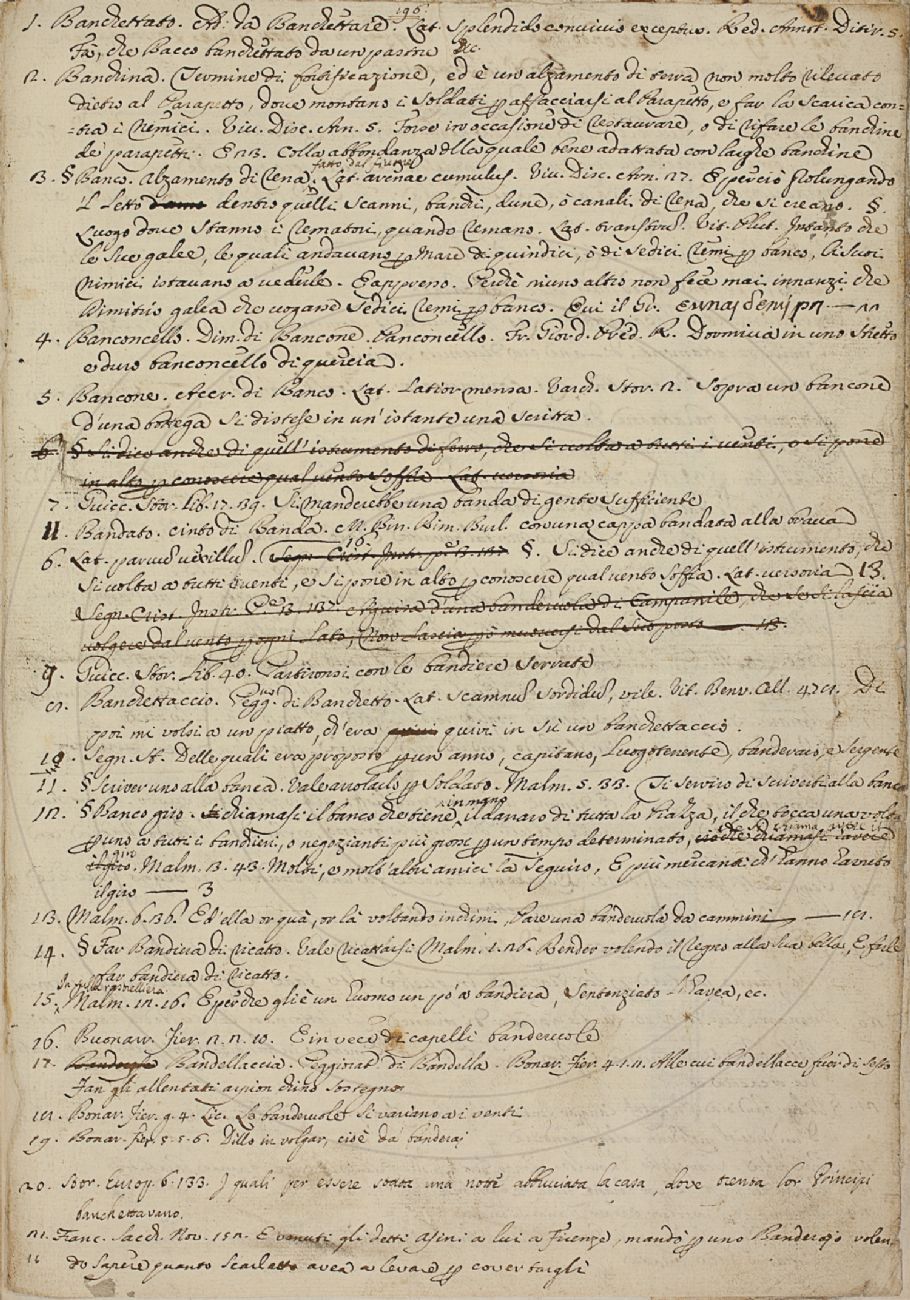 1. Banchettato. Add. da Banchettare. Lat. Splendido convivio exceptus. Red. Annot. Ditir. 5.
Fa, che Bacco banchettato da un pastore &c.
2. Banchina. Termine di fortificazione, ed è un alzamento di terra non molto rilevato
dietro al Parapetto, dove montano i Soldati p affacciarsi al Parapetto, e far la scarica con-
-tra i Nemici. Viv. Disc. Arn. 5. Forse in occasione di restaurare, o di rifare le banchine
de' parapetti. E 23. Colla abbondanza della quale bene adattata con larghe banchine
fatto dal fiume
3. § Banco. Alzamento di Rena, Lat. arenae cumulus. Viv. Disc. Arn. 27. E perciò prolungando
'l letto dentro quelli Scanni, banchi, dune, o canali di Rena, che si creano. §.
Luogo dove Stanno i Rematori, quando Remano. Lat. transtrum. Vit. Plut. Intanto che
le Sue galee, le quali andavano p Mare di quindici, o di Sedici Remi p banco, li Suoi
nimici istavano a vedere. E appresso. Perchè niuno altro non fece mai innanzi che
Dimitrio galea che vogasse Sedici Remi p banco. Qui il Gr. 
4. Banconcello. Dim. di Bancone. Panconcello. Fr. Giord. Pred. R. Dormiva in uno stretto
e duro banconcello di quercia.
5. Bancone. Accr. di Banco. Lat. Latior mensa. Varch. Stor. 2. Sopra un bancone
d'una bottega si distese in un'istante una Scritta.
6. § Si dice anche di quell'istrumento di ferro, che si volta a tutti i venti, e si pone
in alto p conoscere qual vento soffia. Lat. versoria
7. Guicc. Stor. lib. 17. 39. Si manderebbe una banda di gente sufficiente
11. Bandato. cinto di Banda. M. Bin. Rim. Burl. con una cappa bandata alla brava
6. Lat. parvum vexillum. §. Si dice anche di quell'istrumento, che
si volta a tutti i venti, e si pone in alto p conoscere qual vento soffia. Lat. versoria 13.
Segn. Crist. Instr. e figura d'una banderuola di Campanile, che se si lascia
volgere dal vento p ogni lato, non lascia p muoversi dal suo posto 13.
9. Guicc. Stor. Lib. 40. Partironsi con le bandiere serrate
8. Banchettaccio. Pegg. di Banchetto. Lat. Scamnum sordidum, vile. Vit. Benv. Cell. 478. Di
poi mi volsi a un piatto, ch'era quivi in su un banchettaccio.
10. Segn. St. Delle quali era proposto p un anno, capitano, Luogotenente, banderaio, e Sergente
11. § Scriver uno alla banca. Vale arrotarlo p Soldato. Malm. 5. 33. Ti servirò di scriverti alla banca
in mano
12. § Banco giro. chiamasi il banco che tiene il danaro di tutta la Piazza, il che tocca una volta
p uno a tutti i bandieri, o negozianti più grossi p un tempo determinato,
il giro. Malm. 3. 43. Molti, e molt'altri amici la seguiro, E più mercanti ch'hanno tenuto
il giro — 3
13. Malm. 6. 36. Ed ella or quà, or là voltando inchini, Pare una banderuola da cammini — 18.
14. § Far Bandiera di ricatto. Vale ricattarsi Malm. 1. 26. Render volendo il segno alla sua olla, E fare
far bandiera di ricatto.
15. Malm. 12. 16. E perchè gli è un huomo un po' a bandiera, Sentenziato l'havea, ec.
16. Buonarr. Fier. 2. 2. 10. E in vece di capelli banderuole
17. Bandellaccia. Peggiorat. di Bandella. Bonar. Fier. 4. 1. 11. Alle cui bandellacce fuor di sesto
Fan gli allentati arpion chino sostegno
18. Bonar. Fier. g. 4. Lic. Le banderuole si variano a i venti
19. Bonar. Fier. 5. 5. 6. Dillo in volgar, cioè da banderai
20. Stor. Europ. 6. 133. I quali per essere stata una notte abbruciata la casa, dove trenta lor Principi
banchettavano.
21. Franc. Sacch. Nov. 152. E venuti gli detti asini a lui a Firenze, mandò p uno Banderajo volen-
do sapere quanto Scarlatto avea a levare p covertargli